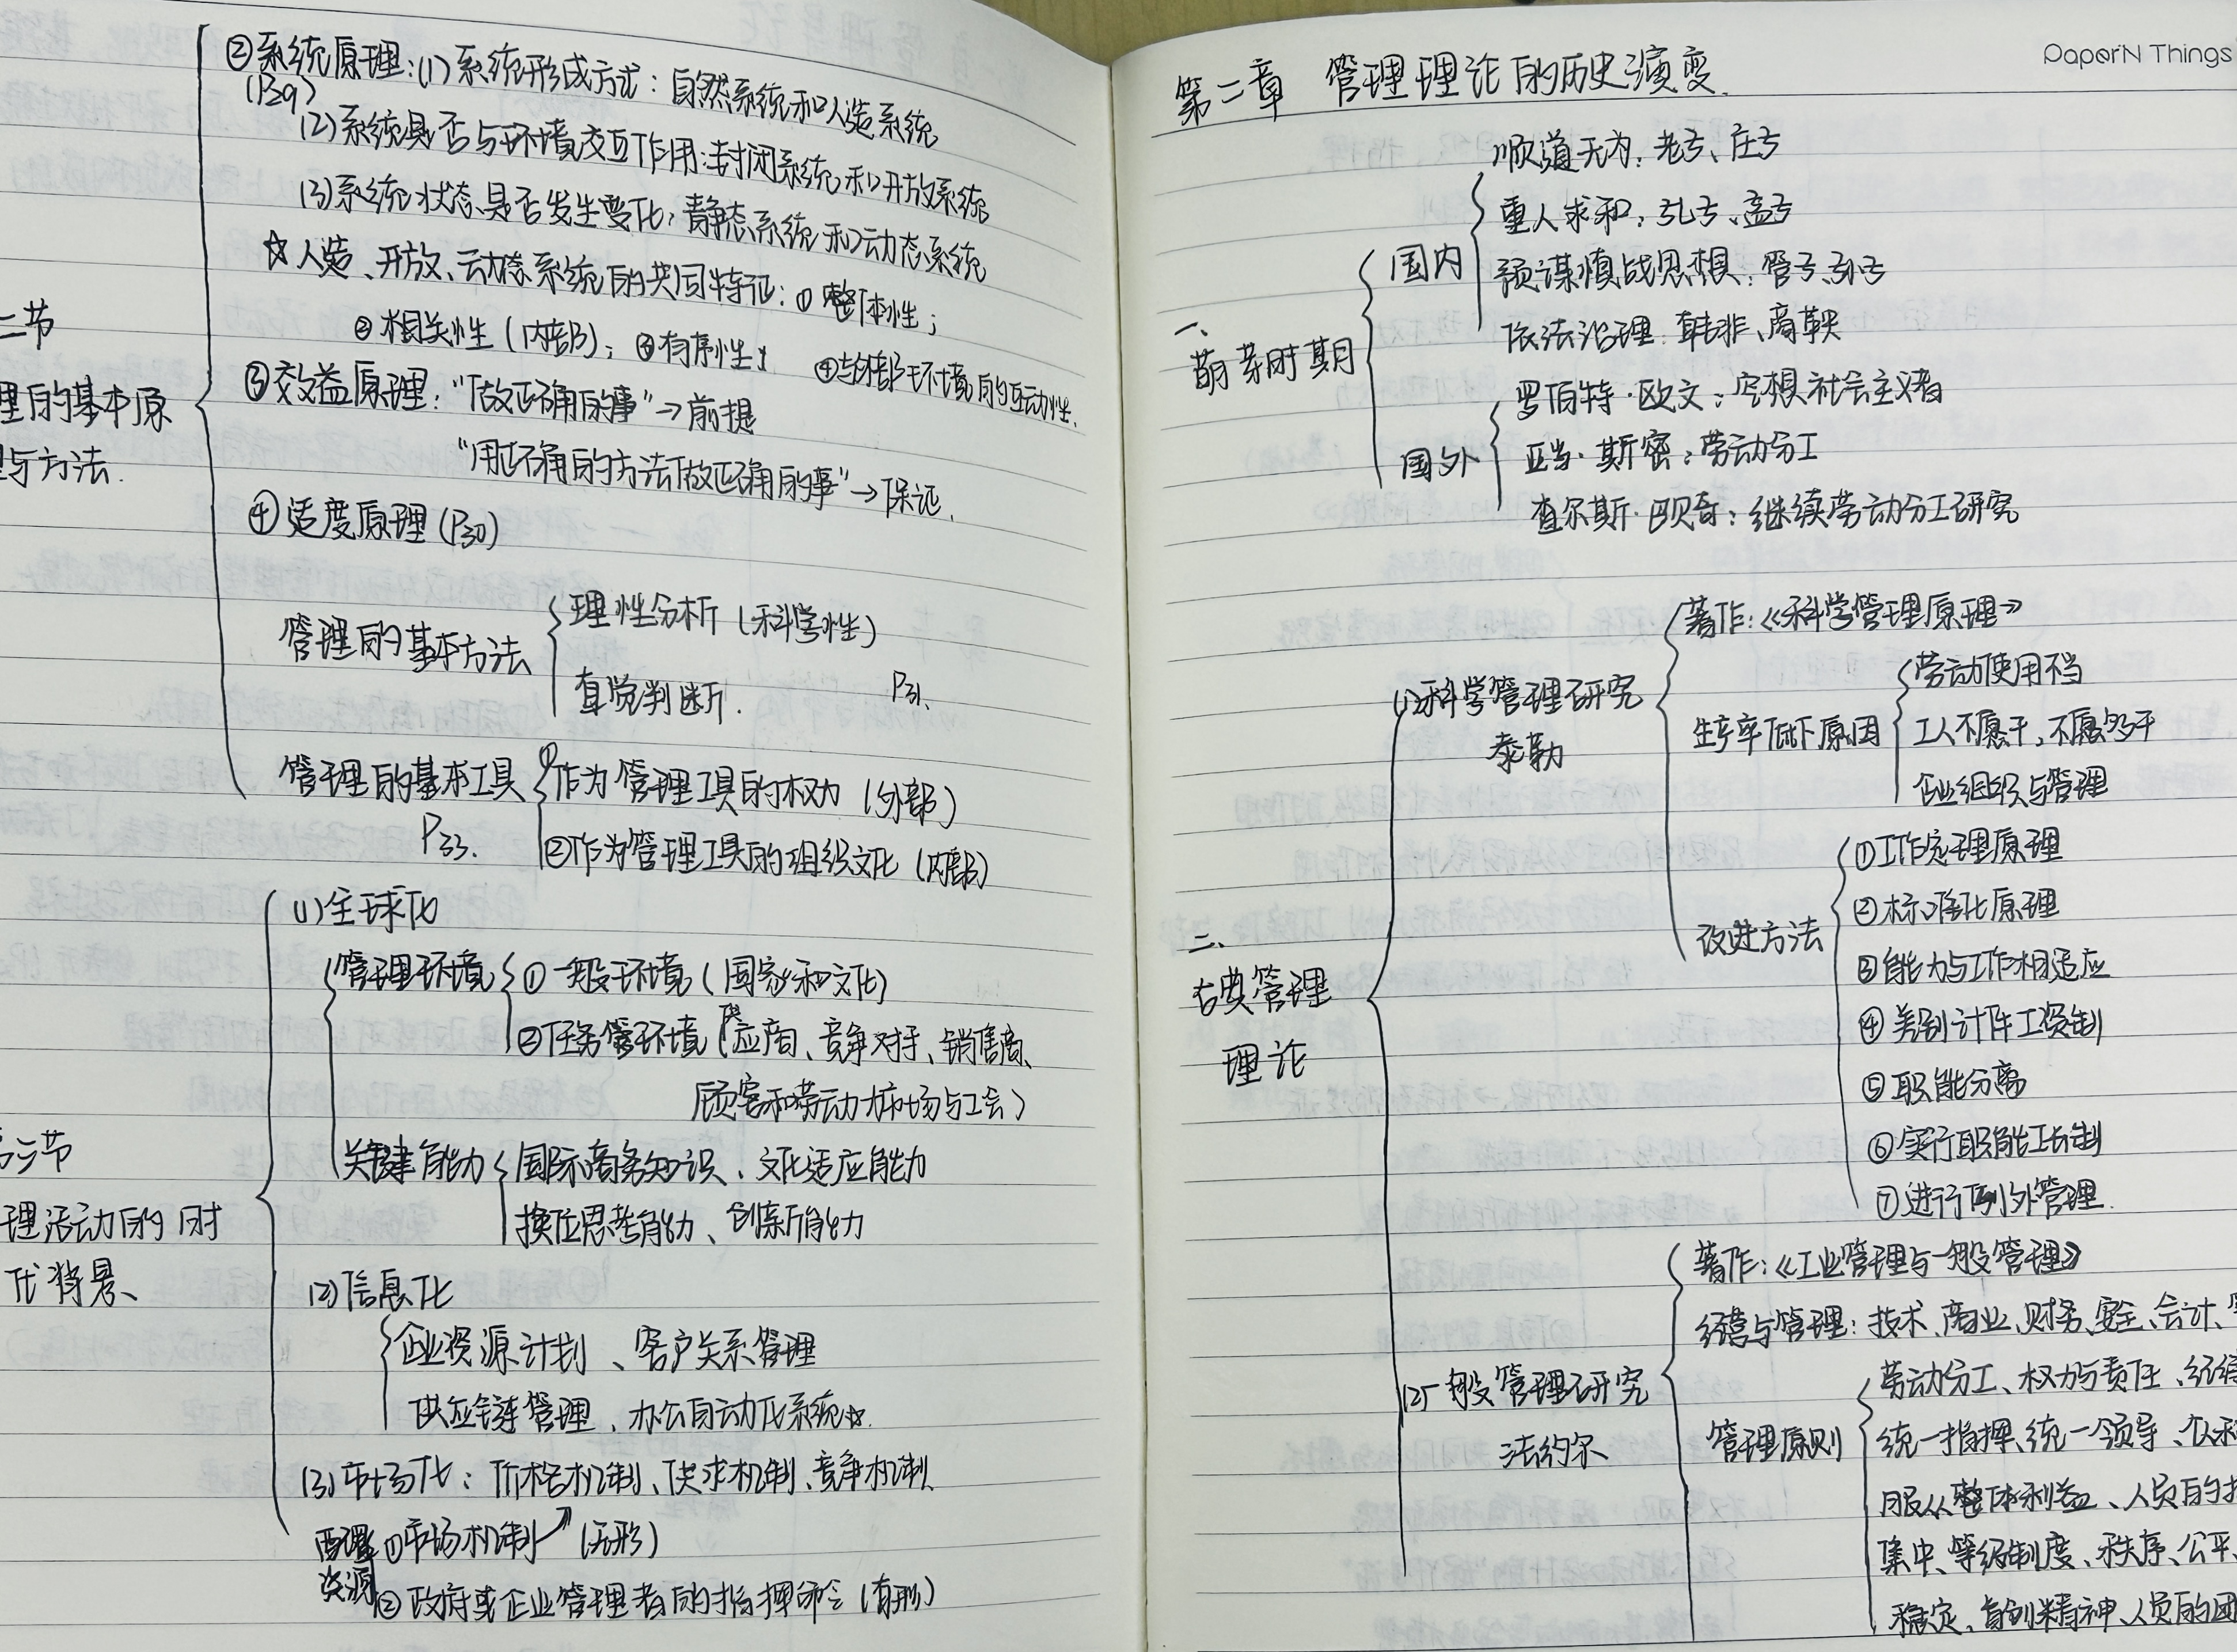 ②系统原理:(1)系统形成方式:自然系统和人造系统
(P29)
(2)系统是否与环境交互作用:封闭系统和开放系统
(3)系统状态是否发生变化:静态系统和动态系统
☆人造、开放、动态系统的共同特征:①整体性;
②相关性(内部);③有序性;④与外部环境的互动性.
二节
理的基本原
理与方法.
③效益原理:“做正确的事”→前提
“用正确的方法做正确的事”→保证.
④适度原理(P30)
管理的基本方法
理性分析(科学性)
直觉判断. P31.
管理的基本工具
P33.
①作为管理工具的权力(外部)
②作为管理工具的组织文化(内部)
三节
理活动的时
代背景、
(1)全球化
管理环境
①一般环境(国家和文化)
②任务环境(供应商、竞争对手、销售商、
顾客和劳动力市场与工会)
关键能力
国际商务知识、文化适应能力
换位思考能力、创新能力
(2)信息化
企业资源计划、客户关系管理
供应链管理、办公自动化系统☆.
(3)市场化:价格机制、供求机制、竞争机制.
配置
资源
①市场机制↗(无形)
②政府或企业管理者的指挥命令(有形)
PaperN Things
第二章 管理理论的历史演变.
一、
萌芽时期
国内
顺道无为:老子、庄子
重人求和:孔子、孟子
预谋慎战思想:管子、孙子
依法治理:韩非、商鞅
国外
罗伯特·欧文:空想社会主义者
亚当·斯密:劳动分工
查尔斯·巴贝奇:继续劳动分工研究
二、
古典管理
理论
(1)科学管理研究
泰勒
著作:《科学管理原理》
生产率低下原因
劳动使用不当
工人不愿干,不愿多干
企业组织与管理
改进方法
①工作定理原理
②标准化原理
③能力与工作相适应
④差别计件工资制
⑤职能分离
⑥实行职能工长制
⑦进行例外管理.
(2)一般管理研究
法约尔
著作:《工业管理与一般管理》
经营与管理:技术、商业、财务、安全、会计、
管理原则
劳动分工、权力与责任、纪律
统一指挥、统一领导、个人利
服从整体利益、人员的报
集中、等级制度、秩序、公平、
稳定、首创精神、人员的团